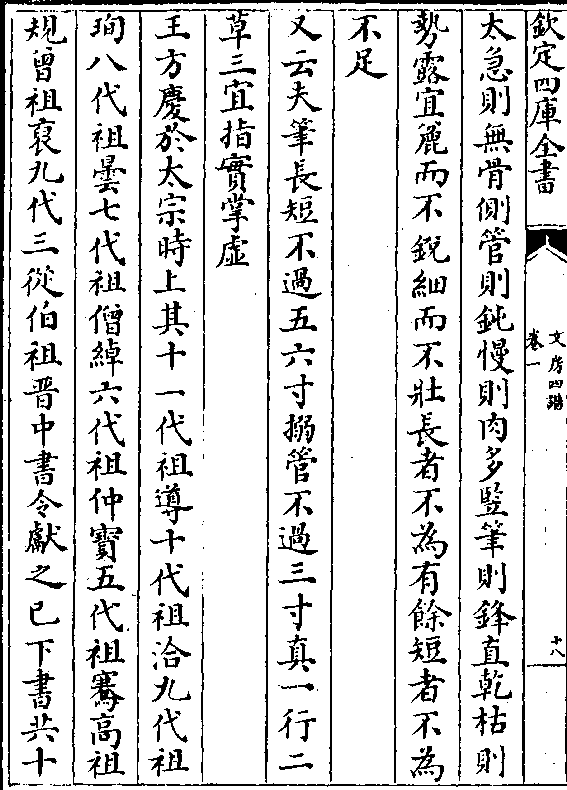 欽定四庫全書
文房四譜
卷一
十八
太急則無骨側管則鈍慢則肉多豎筆則鋒直乾枯則
勢露宜麄而不銳細而不壯長者不為有餘短者不為
不足
又云夫筆長短不過五六寸搦管不過三寸真一行二
草三宜指實掌虛
王方慶於太宗時上其十一代祖導十代祖洽九代祖
珣八代祖曇七代祖僧綽六代祖仲寳五代祖騫高祖
規曾祖裒九代三從伯祖晋中書令獻之已下書共十